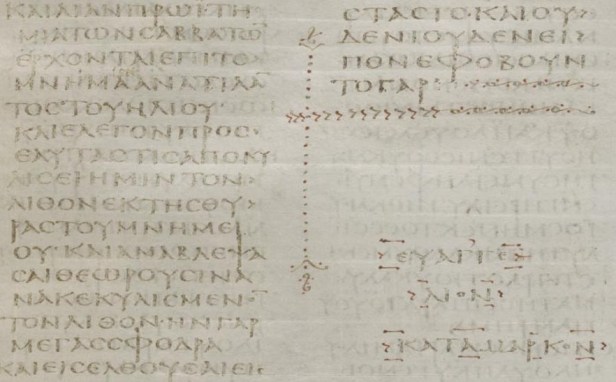 ΚΑΙΛΙΑΝΠΡΩΪΤΗ
ΜΙΑΤΩΝϹΑΒΒΑΤΩ̅
ΕΡΧΟΝΤΑΙΕΠΙΤΟ
ΜΝΗΜΑΑΝΑΤΙΛΑ̅
ΤΟϹΤΟΥΗΛΙΟΥ·
ΚΑΙΕΛΕΓΟΝΠΡΟϹ
ΕΑΥΤΑϹΤΙϹΑΠΟΚΥ
ΛΙϹΕΙΗΜΙΝΤΟΝ
ΛΙΘΟΝΕΚΤΗϹΘΥ
ΡΑϹΤΟΥΜΝΗΜΕΙ
ΟΥ·ΚΑΙΑΝΑΒΛΕΨΑ
ϹΑΙΘΕΩΡΟΥϹΙΝΑ
ΝΑΚΕΚΥΛΙϹΜΕΝΟ̅
ΤΟΝΛΙΘΟΝ·ΗΝΓΑΡ
ΜΕΓΑϹϹΦΟΔΡΑ
ΚΑΙΕΙϹΕΛΘΟΥϹΑΙΕΙϹ
ϹΤΑϹΙϹ·ΚΑΙΟΥ
ΔΕΝΙΟΥΔΕΝΕΙ
ΠΟΝΕΦΟΒΟΥΝ
ΤΟΓΑΡ:
ΕΥΑΓΓΕ
ΛΙΟΝ
ΚΑΤΑΜΑΡΚΟΝ